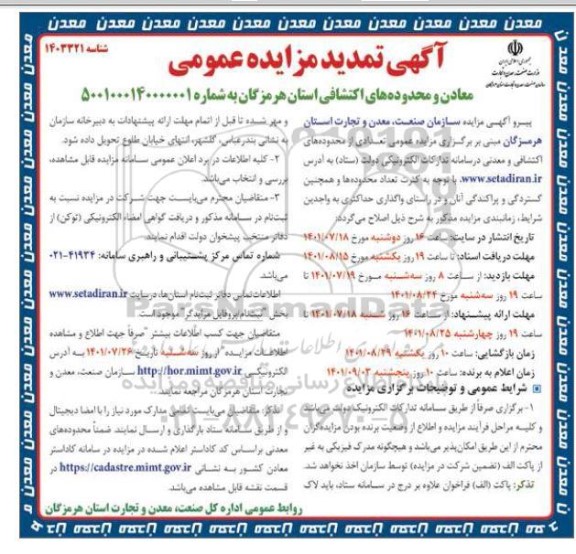 معدن معدن معدن معدن معدن معدن معدن معدن معدن معدن معدن
شناسه ۱۴۰۳۳۲۱
آگهی تمدید مزایده عمومی
معادن و محدوده‌های اکتشافی استان هرمزگان به شماره ۵۰۰۱۰۰۰۱۴۰۰۰۰۰۰۱
پیرو آگهی مزایده سازمان صنعت، معدن و تجارت استان
هرمزگان مبنی بر برگزاری مزایده عمومی تعدادی از محدوده‌های
اکتشافی و معدنی در سامانه تدارکات الکترونیکی دولت (ستاد) به آدرس
www.setadiran.ir، با توجه به کثرت تعداد محدوده‌ها و همچنین
گستردگی و پراکندگی آنان و در راستای واگذاری حداکثری به واجدین
شرایط، زمانبندی مزایده مذکور به شرح ذیل اصلاح می‌گردد:
تاریخ انتشار در سایت: ساعت ۱۶ روز دوشنبه مورخ ۱۴۰۱/۰۷/۱۸
مهلت دریافت اسناد: تا ساعت ۱۹ روز یکشنبه مورخ ۱۴۰۱/۰۸/۱۵
مهلت بازدید: از ساعت ۸ روز سه‌شنبه مورخ ۱۴۰۱/۰۷/۱۹ تا
ساعت ۱۹ روز سه‌شنبه مورخ ۱۴۰۱/۰۸/۲۴
مهلت ارائه پیشنهاد: از ساعت ۱۶ روز شنبه ۱۴۰۱/۰۷/۱۸ تا
ساعت ۱۹ روز چهارشنبه ۱۴۰۱/۰۸/۲۵
زمان بازگشایی: ساعت ۱۰ روز یکشنبه ۱۴۰۱/۰۸/۲۹
زمان اعلام به برنده: ساعت ۱۰ روز پنجشنبه ۱۴۰۱/۰۹/۰۳
شرایط عمومی و توضیحات برگزاری مزایده
۱- برگزاری صرفاً از طریق سامانه تدارکات الکترونیک دولت می‌باشد
و کلیه مراحل فرآیند مزایده و اطلاع از وضعیت برنده بودن مزایده‌گران
محترم از این طریق امکان‌پذیر می‌باشد و هیچگونه مدرک فیزیکی به غیر
از پاکت الف (تضمین شرکت در مزایده) توسط سازمان اخذ نخواهد شد.
تذکر: پاکت (الف) فراخوان علاوه بر درج در سامانه ستاد، باید لاک
و مهر شده تا قبل از اتمام مهلت ارائه پیشنهادات به دبیرخانه سازمان
به نشانی بندرعباس، گلشهر، انتهای خیابان طلوع تحویل داده شود.
۲- کلیه اطلاعات در برد اعلان عمومی سامانه مزایده قابل مشاهده،
بررسی و انتخاب می‌باشد.
۳- متقاضیان محترم می‌بایست جهت شرکت در مزایده نسبت به
ثبت‌نام در سامانه مذکور و دریافت گواهی امضاء الکترونیکی (توکن) از
دفاتر منتخب پیشخوان دولت اقدام نمایند.
شماره تماس مرکز پشتیبانی و راهبری سامانه: ۴۱۹۳۴-۰۲۱
می‌باشد.
اطلاعات تماس دفاتر ثبت‌نام استان‌ها، در سایت www.setadiran.ir
بخش "ثبت‌نام پروفایل مزایده‌گر" موجود است.
متقاضیان جهت کسب اطلاعات بیشتر "صرفاً جهت اطلاع و مشاهده
اطلاعات مزایده" از روز سه‌شنبه تاریخ ۱۴۰۱/۰۷/۲۶ به آدرس
الکترونیکی http://hor.mimt.gov.ir سازمان صنعت، معدن و
تجارت استان هرمزگان مراجعه نمایند.
تذکر: متقاضیان می‌بایست تمامی مدارک مورد نیاز را با امضا دیجیتال
و از طریق سامانه ستاد بارگذاری و ارسال نمایند. ضمناً محدوده‌های
معدنی براساس کد کاداستر اعلام شده در مزایده در سامانه کاداستر
معادن کشور به نشانی https://cadastre.mimt.gov.ir در
قسمت نقشه قابل مشاهده می‌باشد.
روابط عمومی اداره کل صنعت، معدن و تجارت استان هرمزگان